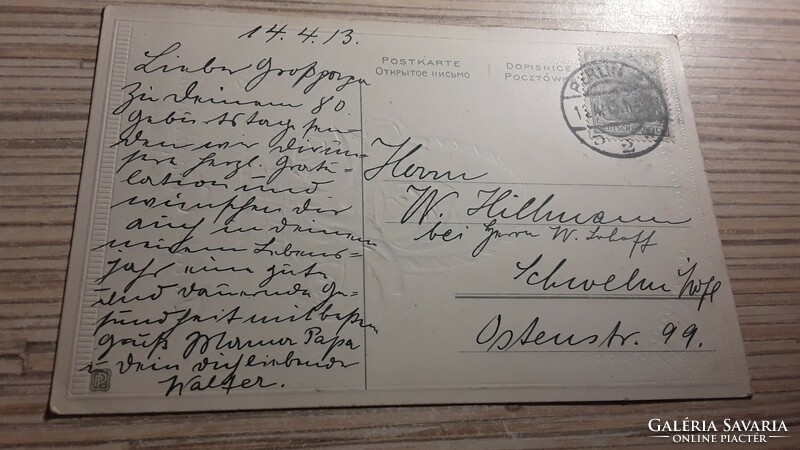 14.4.13.
Lieber Großpapa
Zu Deinem 80.
Geburtstag sen-
den wir Dir un-
sere herzl. Gratu-
lation und
wünschen Dir
auch in Deinem
neuen Lebens-
jahr eine gute
und dauernde Ge-
sundheit mit besten
Gruß Mama Papa
u Dein Dich liebender
Walter.
POSTKARTE
ОТКРЫТОЕ ПИСЬМО
DOPISNICE
POCZTÓWK
BERLIN
Herrn
W. Hillmann
bei Herrn W. Lohoff
Schwelm i/Wf
Ostenstr. 99.
GALÉRIA SAVARIA
ONLINE PIACTÉR